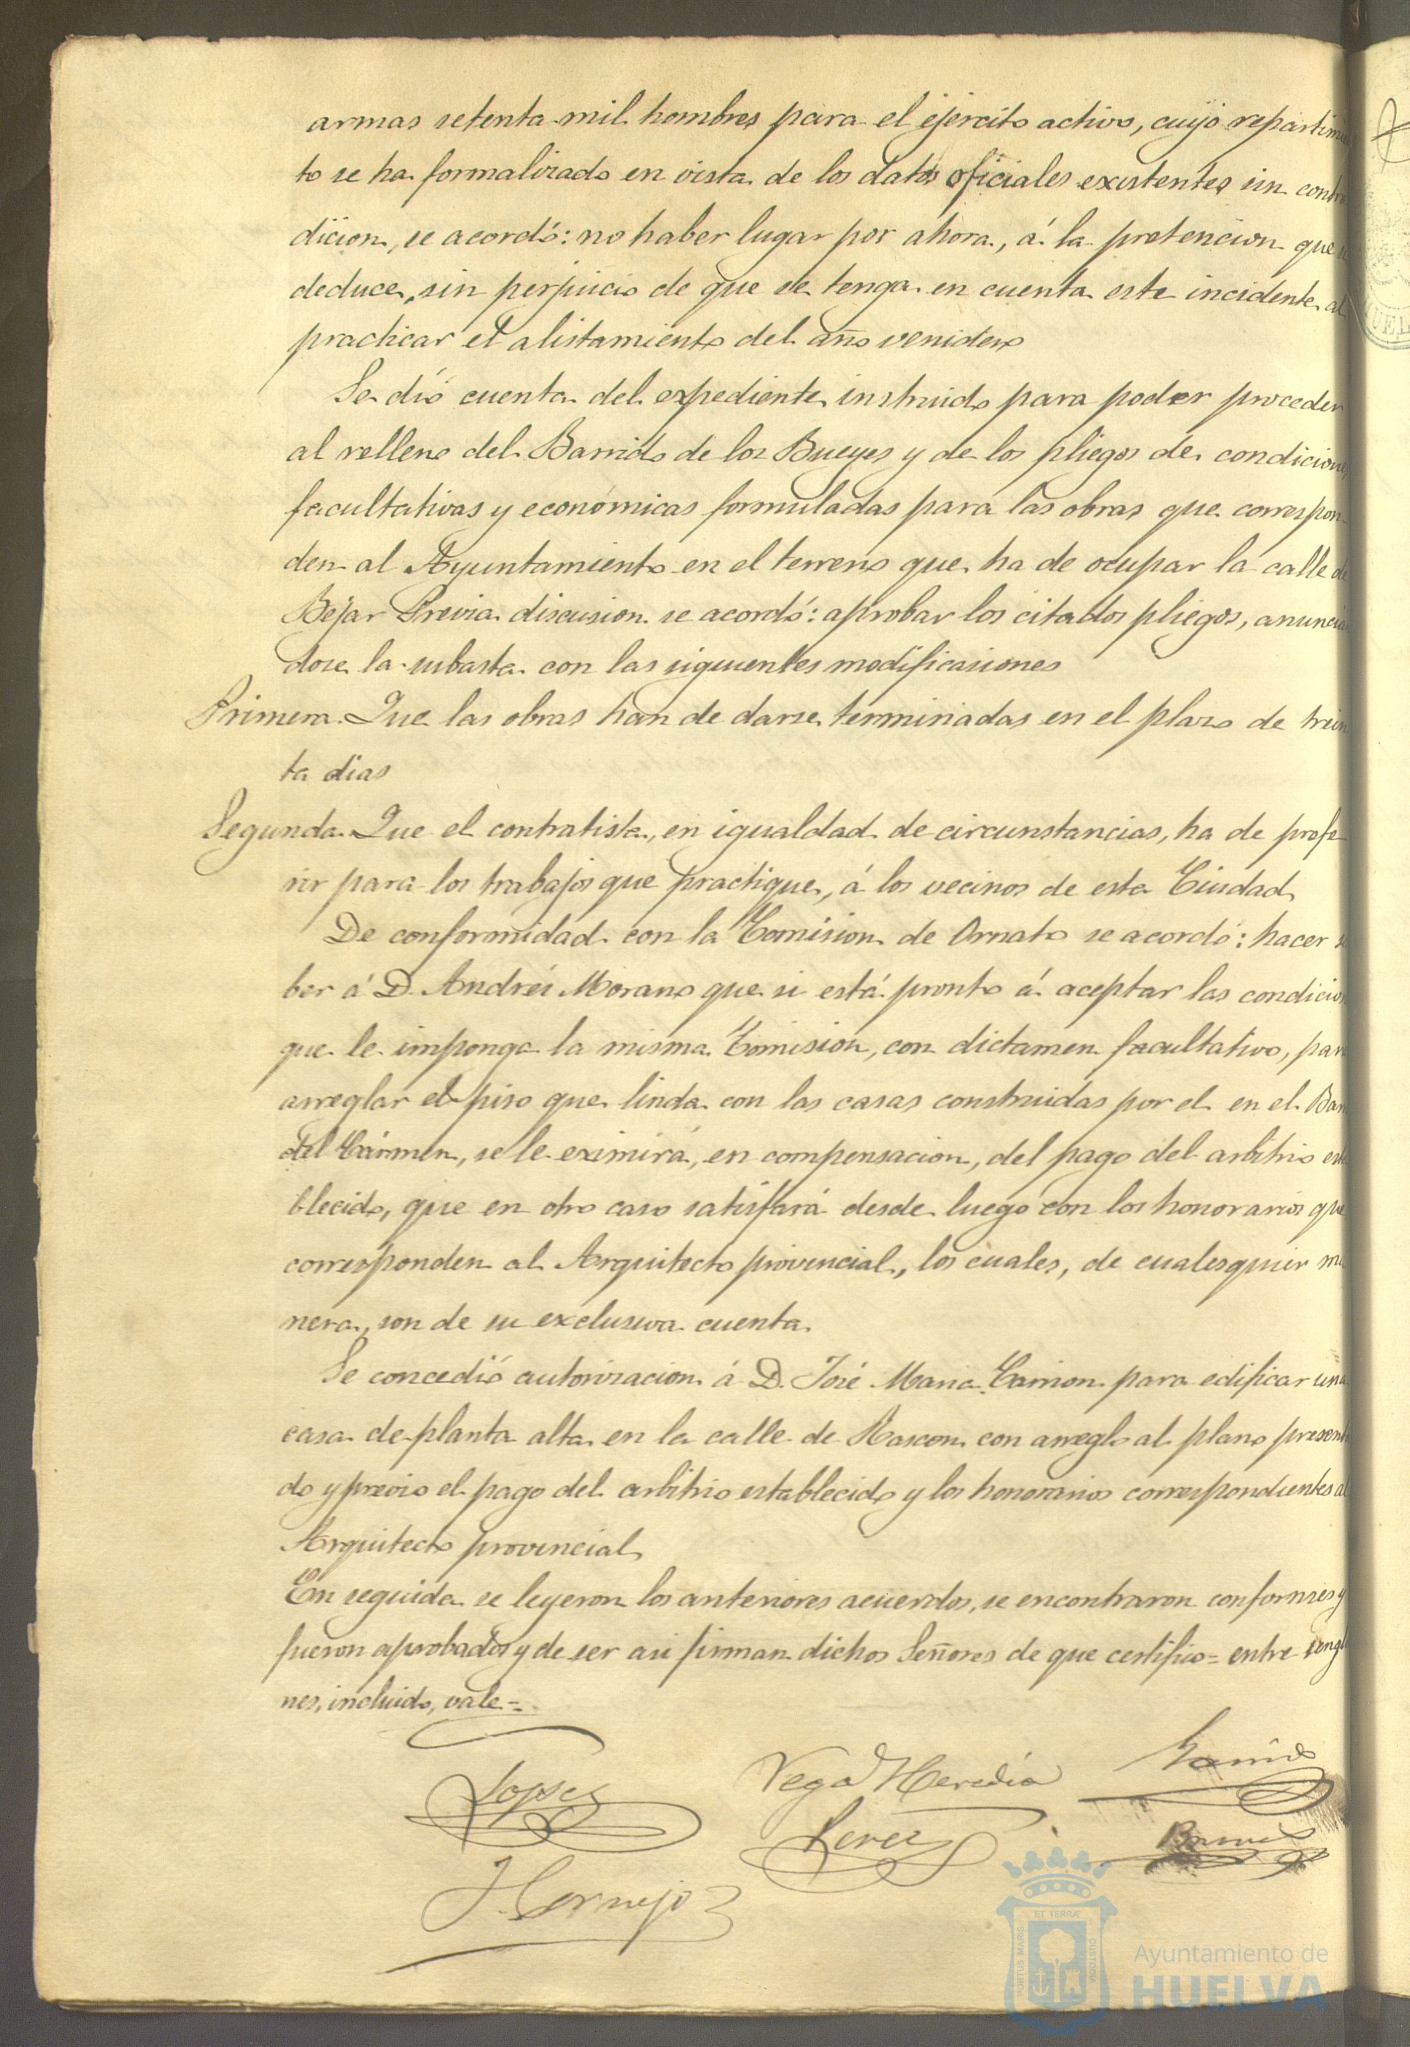 armas setenta mil hombres para el ejército activo, cuyo repartimi
to se ha formalizado en vista de los datos oficiales existentes sin contra
dicion, se acordó: no haber lugar por ahora, á la pretencion que se
deduce, sin perjuicio de que se tenga en cuenta este incidente al
practicar el alistamiento del año venidero
Se dió cuenta del expediente instruido para poder proceder
al relleno del Barrido de los Bueyes y de los pliegos de condicione
facultativas y económicas formuladas para las obras que correspon
den al Ayuntamiento en el terreno que ha de ocupar la calle de
Bejar Previa discusion se acordó: aprobar los citados pliegos, anuncia
dose la subasta con las siguientes modificaciones
Primera. Que las obras han de darse terminadas en el plazo de trein
ta dias
Segunda. Que el contratista, en igualdad de circunstancias, ha de prefe
rir para los trabajos que practique, á los vecinos de esta Ciudad
De conformidad con la Comision de Ornato se acordó: hacer sa
ber á D. Andrés Morano que si está pronto á aceptar las condicio
que le imponga la misma Comision, con dictamen facultativo, para
arreglar el piso que linda con las casas construidas por el en el Bar
del Cármen, se le eximirá, en compensacion, del pago del arbitrio esta
blecido, que en otro caso satisfará desde luego con los honorarios que
corresponden al Arquitecto provincial, los cuales, de cualesquier ma
nera, son de su exclusiva cuenta.
Se concedió autorizacion á D. José Maria Carrion para edificar una
casa de planta alta en la calle de Rascon con arreglo al plano presenta
do y previo el pago del arbitrio establecido y los honorarios correspondientes al
Arquitecto provincial
En seguida se leyeron los anteriores acuerdos, se encontraron conformes y
fueron aprobados y de ser asi firman dichos Señores de que certifico= entre renglo
nes, incluido, vale=
Lopez
Vega Heredia
Perez
J. Cornejo
ET TERRÆ
PORTUS MARIS
CUSTODIA
Ayuntamiento de
HUELVA